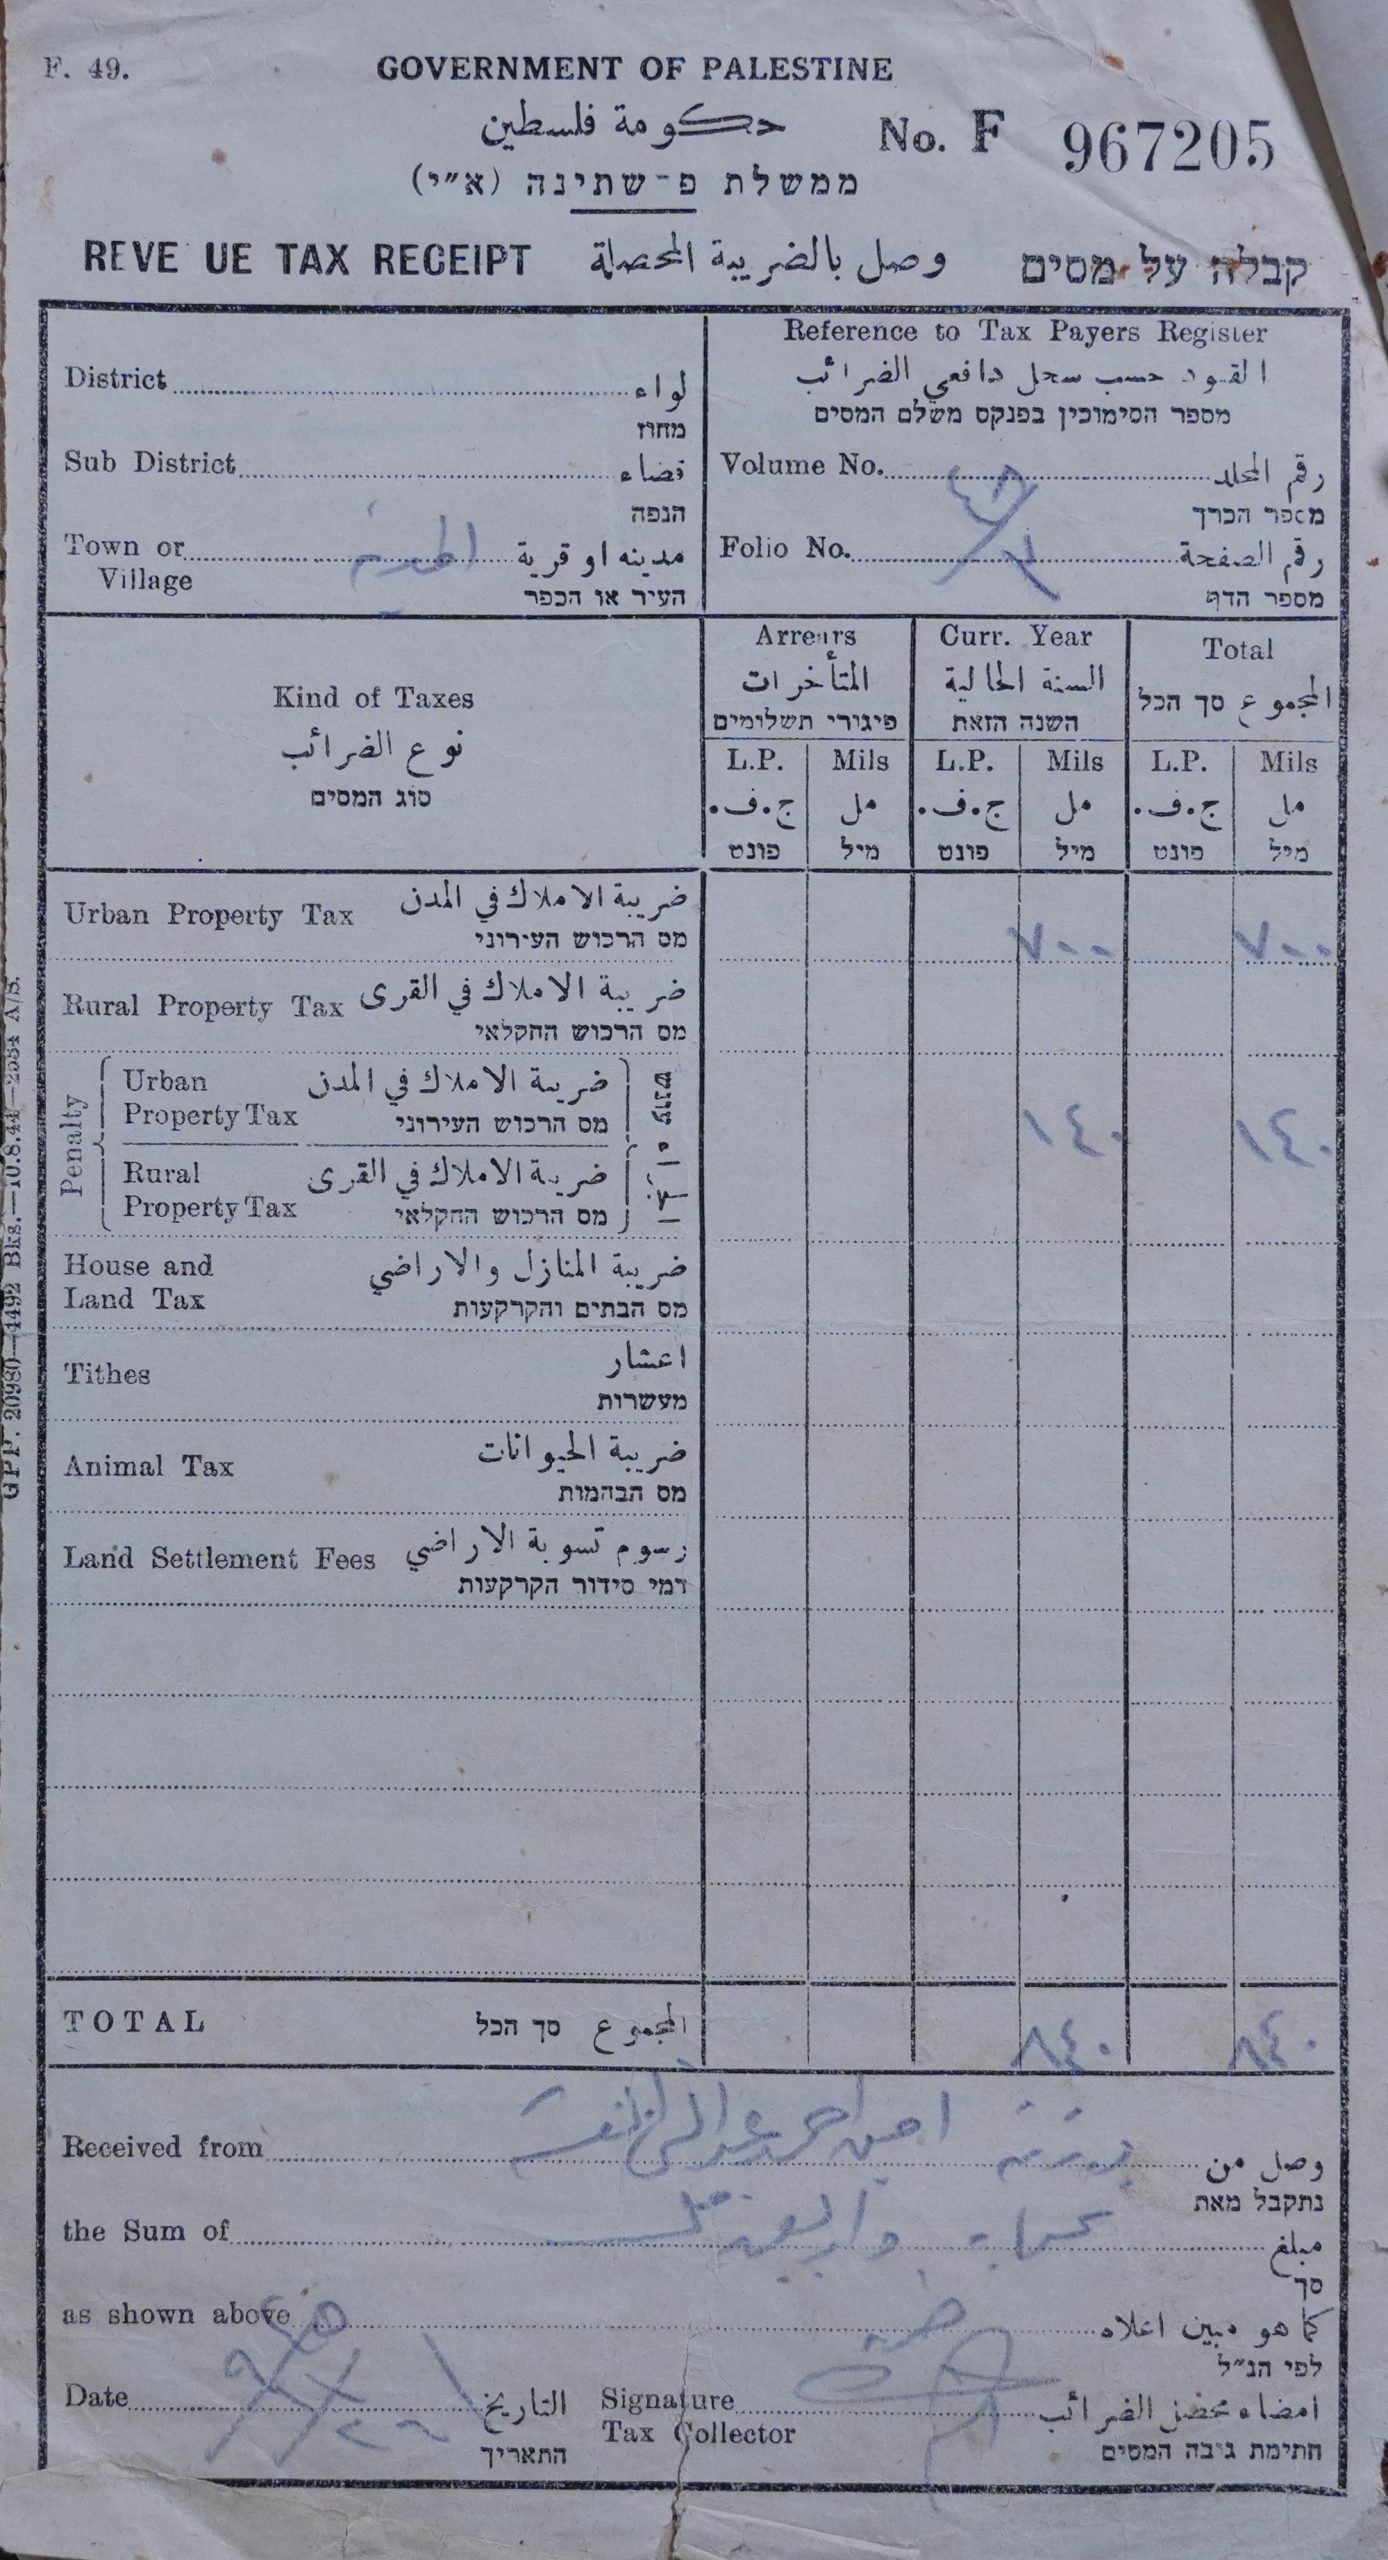 F. 49.
GOVERNMENT OF PALESTINE
حكومة فلسطين
No. F 967205
ממשלת פ־שתינה (א״י)
REVE UE TAX RECEIPT وصل بالضريبة المحصلة קבלה על מסים
Reference to Tax Payers Register
القيود حسب سجل دافعي الضرائب
מספר הסימוכין בפנקס משלם המסים
District لواء
מחוז
Sub District قضاء
הנפה
Town or Village مدينه او قرية
העיר או הכפר
Volume No. رقم المجلد
מספר הכרך
Folio No. رقم الصفحة
מספר הדף
Kind of Taxes
نوع الضرائب
סוג המסים
Arrears
المتأخرات
פיגורי תשלומים
Curr. Year
السنة الحالية
השנה הזאת
Total
المجموع סך הכל
L.P. Mils L.P. Mils L.P. Mils
ج.ف. مل ج.ف. مل ج.ف. مل
פונט מיל פונט מיל פונט מיל
Urban Property Tax ضريبة الاملاك في المدن ٧٠٠ ٧٠٠
מס הרכוש העירוני
Rural Property Tax ضريبة الاملاك في القرى
מס הרכוש החקלאי
Penalty
Urban Property Tax ضريبة الاملاك في المدن ١٤٠ ١٤٠
מס הרכוש העירוני
עונש
Rural Property Tax ضريبة الاملاك في القرى
מס הרכוש החקלאי
House and Land Tax ضريبة المنازل والاراضي
מס הבתים והקרקעות
Tithes اعشار
מעשרות
Animal Tax ضريبة الحيوانات
מס הבהמות
Land Settlement Fees رسوم تسوية الاراضي
דמי סידור הקרקעות
TOTAL المجموع סך הכל ٨٤٠ ٨٤٠
Received from وصل من
נתקבל מאת
the Sum of مبلغ
סך
as shown above كما هو مبين اعلاه
לפי הנ״ל
Date التاريخ
התאריך
Signature Tax Collector امضاء محصل الضرائب
חתימת גובה המסים
GPP. 20980—4492 Bks.—10.8.44—2554 A/S.